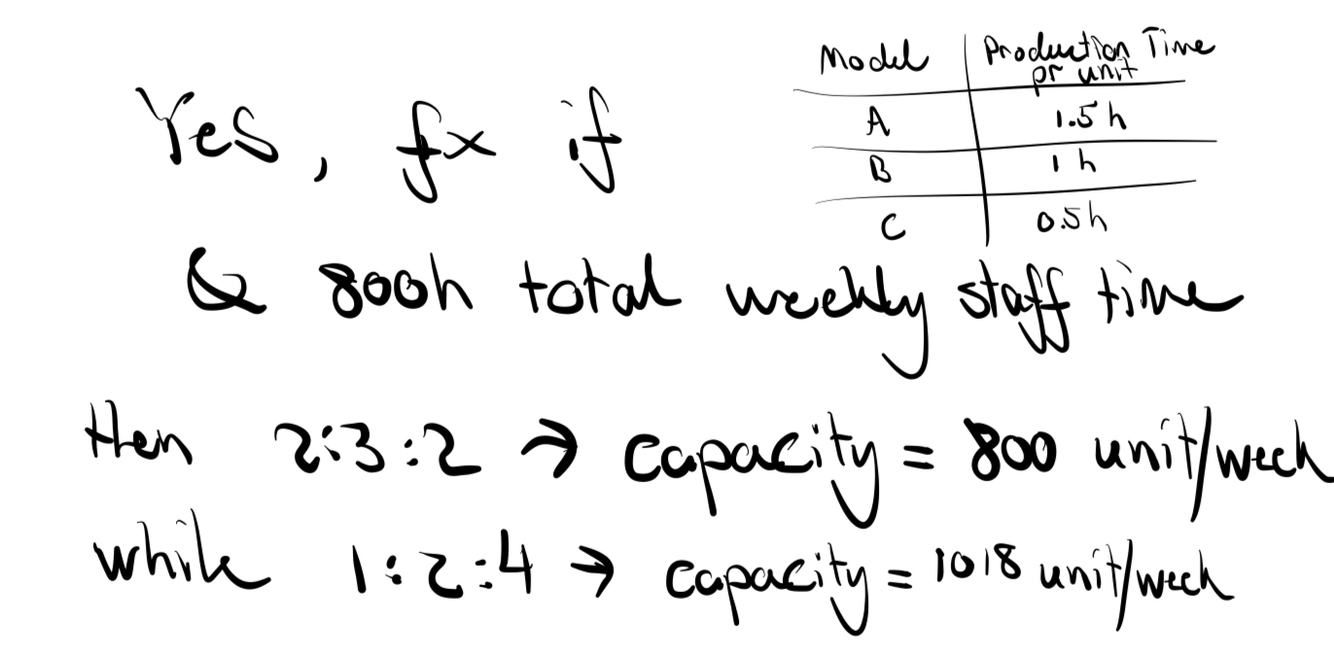 Model Production Time
pr unit
A 1.5h
B 1h
C 0.5h
Yes, fx if
& 800h total weekly staff time
then 2:3:2 → capacity = 800 unit/week
while 1:2:4 → capacity = 1018 unit/week